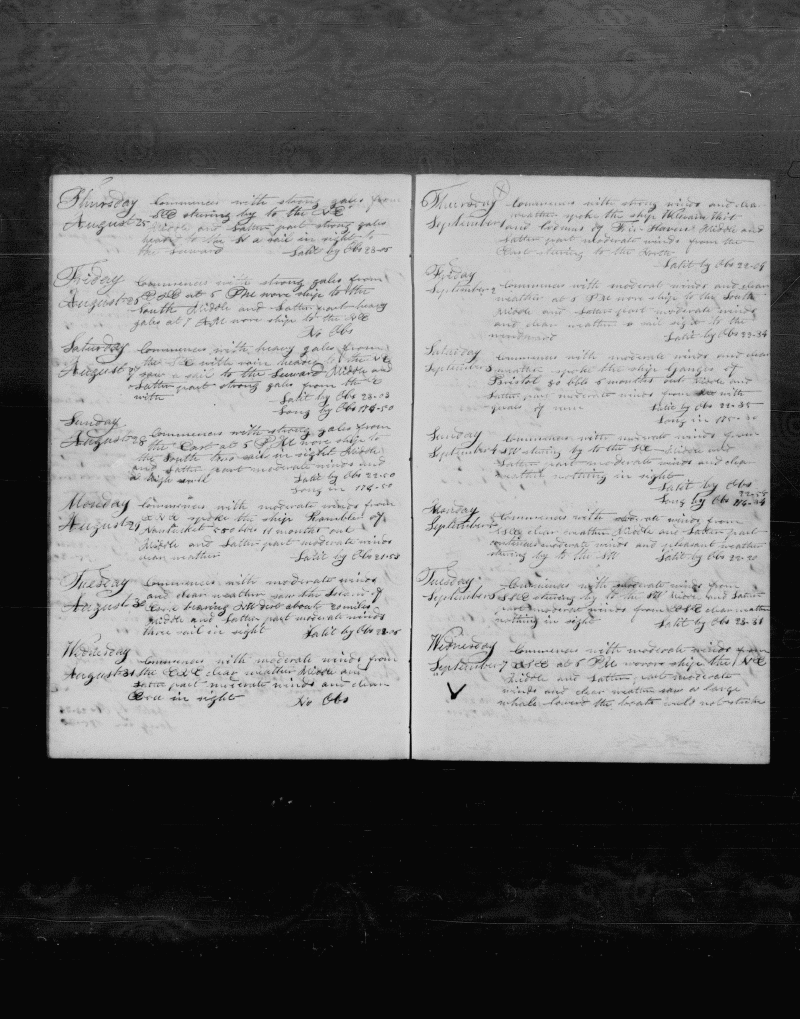 Thursday Commences with strong gales from
August 25 SSE steering by to the NE
Middle and Latter part strong gales
head to the N a sail in sight
the Leeward Latit by Obs 23-05
Friday Commences with strong gales from
August 26 ESE at 5 PM wore ship to the
South Middle and Latter part heavy
gales at 7 AM wore ship to the NE
No Obs
Saturday Commences with heavy gales from
August 27 saw a sail to the Leeward Middle and
Latter part strong gales from the E
with Latit by Obs 23-03
Long by Obs 174-50
Sunday
August 28 Commences with strong gales from
the East at 5 PM wore ship to
the South two sail in sight Middle
and Latter part moderate winds and
a high swell Latit by Obs 22-50
Long in 174-50
Monday Commences with moderate winds from
August 29 ENE spoke the ship Rambler of
Nantucket 500 bbls 11 months out
Middle and Latter part moderate winds
clear weather Latit by Obs 21-53
Tuesday Commences with moderate winds
August 30 and clear weather saw the Island of
bearing SW dist about 20 miles
Middle and Latter part moderate winds
three sail in sight Latit by Obs
Wednesday Commences with moderate winds from
August 31 the ENE clear weather Middle and
Latter part moderate winds and clear
in sight No Obs
Thursday Commences with strong winds and clear
September 1 weather spoke the ship William
and of New Haven Middle and
Latter part moderate winds from the
East steering to the North
Latit by Obs 22-29
Friday
September 2 Commences with moderate winds and clear
weather at 5 PM wore ship to the South
Middle and Latter part moderate winds
and clear weather a sail sight to the
windward Latit by Obs 23-34
Saturday Commences with moderate winds and clear
September 3 weather spoke the ship Ganges of
Bristol 30 bbls 6 months out Middle and
Latter part moderate winds from with
Latit by Obs 22-35
Long in
Sunday Commences with moderate winds from
September 4 SW steering by to the SE Middle and
Latter part moderate winds and clear
weather nothing in sight
Latit by Obs
Long by Obs
Monday
September 5 Commences with moderate winds from
ESE clear weather Middle and Latter part
moderate winds and pleasant weather
steering by to the SW Latit by Obs 22-20
Tuesday Commences with moderate winds from
September 6 ESE steering by to the SW Middle and Latter
part moderate winds from ESE clear weather
nothing in sight Latit by Obs 23-31
Wednesday
Commences with moderate winds from
September 7 ESE at 5 PM wore ship the NE
Middle and Latter part moderate
winds and clear weather saw a large
whale lowerd the boats could not strike